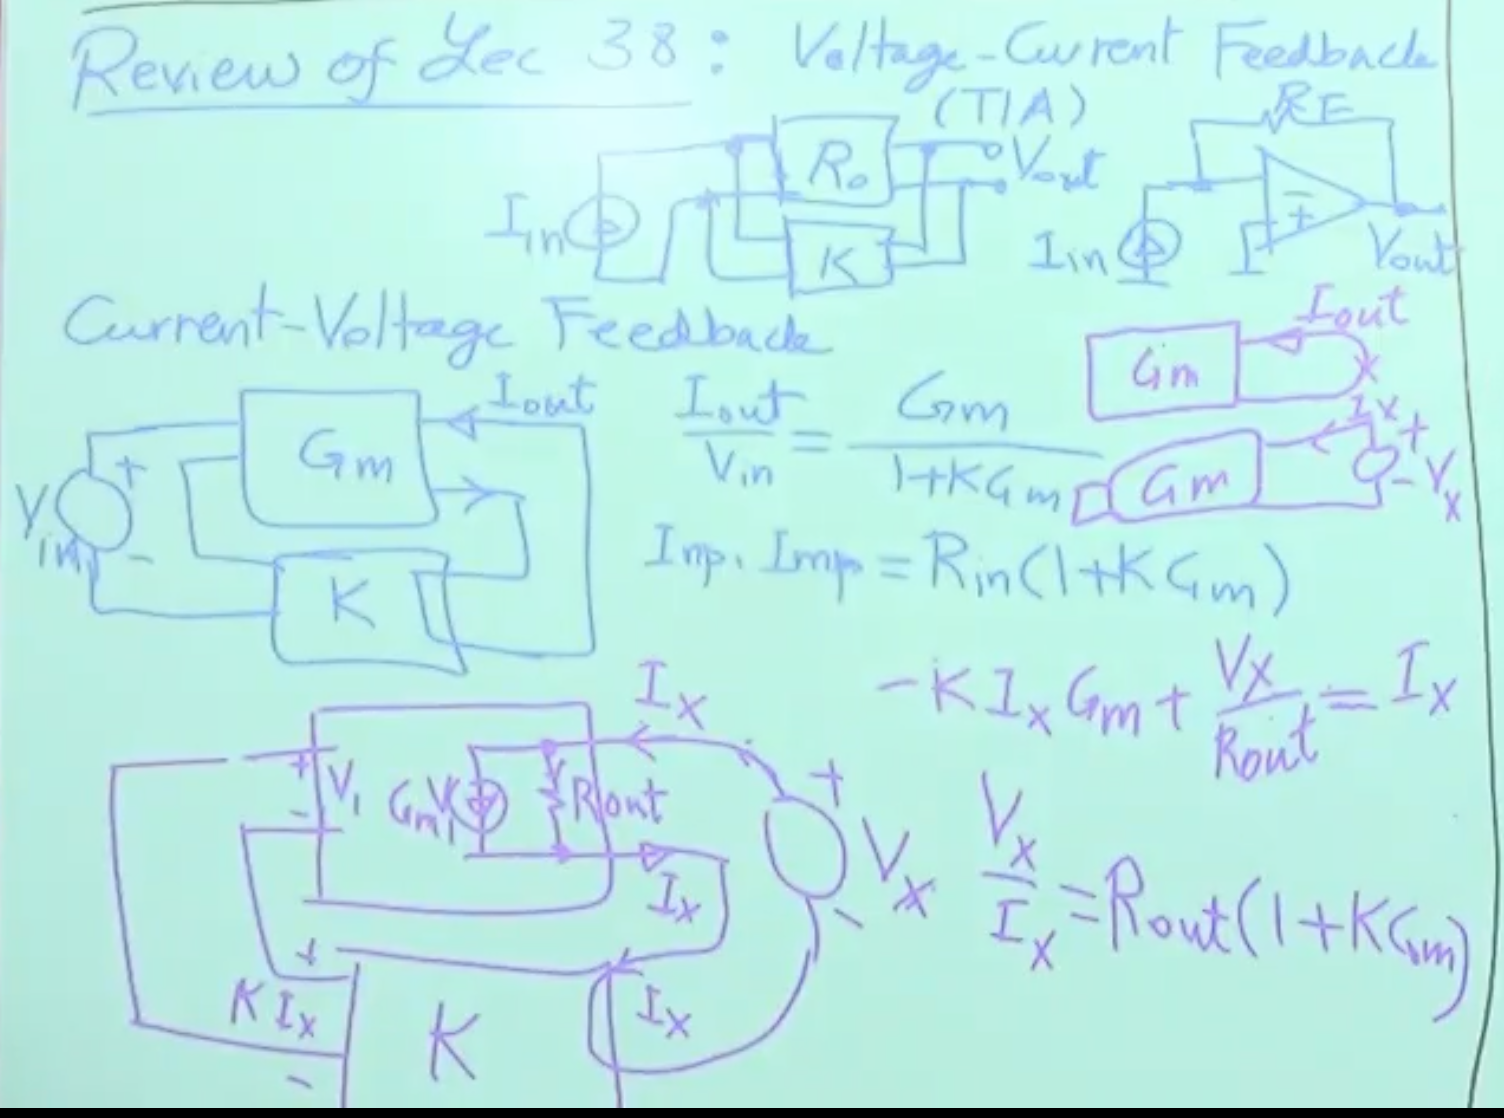 Review of Lec 38: Voltage-Current Feedback
(TIA)
R₀
Vout
K
Iin
RF
Iin
-
+
Vout
Current-Voltage Feedback
Vin
+
-
Gm
Iout
K
Iout/Vin = Gm/(1+KGm)
Gm
Iout
Gm
Ix
+
-
Vx
Inp. Imp = Rin(1+KGm)
-KIxGm + Vx/Rout = Ix
Vx/Ix = Rout(1+KGm)
Ix
+
V₁
-
GmV₁
Rout
+
Vx
-
Ix
+
KIx
-
K
Ix